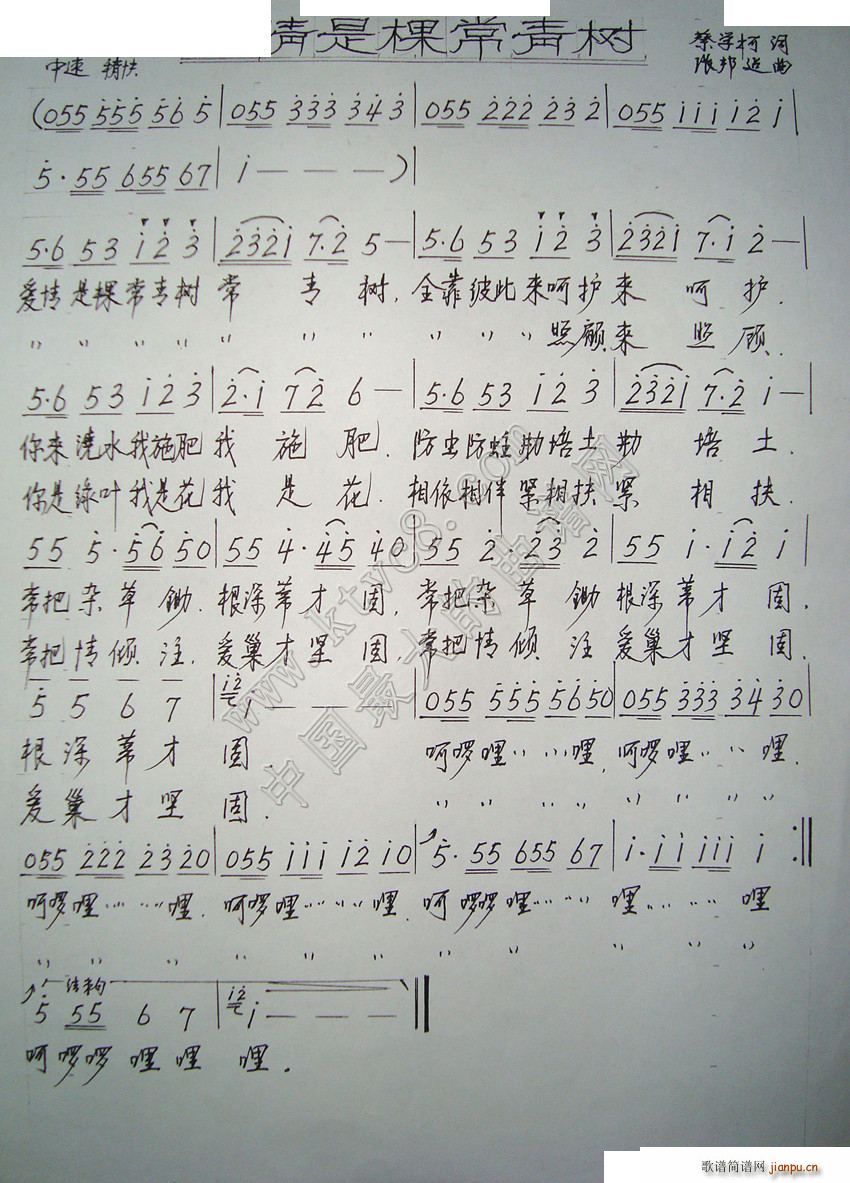 情是棵常青树
蔡学柯 词
中速 稍快
张邦 曲
(055 555 56 5 | 055 333 34 3 | 055 222 23 2 | 055 iii i2 i |
5·55 655 67 | i — — — ) |
5·6 53 i 2 3 | 2321 7·2 5 — | 5·6 53 i 2 3 | 2321 7·i 2 — |
爱情是棵常青树 常 青 树. 全靠彼此来呵护来 呵 护.
〃 〃 〃 〃 〃 〃 〃 〃 〃 〃 〃 照顾来 照 顾.
5·6 53 i 2 3 | 2·i 72 6 — | 5·6 53 i 2 3 | 2321 7·2 i — |
你来浇水我施肥我 施 肥. 防虫防蛀勤培土勤 培 土.
你是绿叶我是花我 是 花. 相依相伴紧相扶紧 相 扶.
55 5·56 50 | 55 4·45 40 | 55 2·23 2 | 55 i·i2 i |
常把杂草锄. 根深蒂才固, 常把杂草锄 根深蒂才固.
常把情倾注, 爱巢才坚固, 常把情倾注 爱巢才坚固.
5 5 6 7 | i2 i — — — | 055 555 5650 | 055 333 3430 |
根深蒂才 固. 呵啰哩〃〃〃〃哩, 呵啰哩〃〃〃哩.
爱巢才坚 固. 〃 〃 〃 〃 〃 〃 〃 〃
055 222 2320 | 055 iii i2 i0 | 5·55 655 67 | i·ii iiii i :||
呵啰哩〃〃〃〃哩. 呵啰哩〃〃〃〃哩. 呵啰啰哩〃〃〃 哩〃〃〃〃 哩
〃 〃 〃 〃 〃 〃 〃 〃 〃 〃 〃 〃
结束句
5 55 6 7 | i2 i — — — ||
呵啰啰哩哩 哩.
www.ktvc8.com
中国最大的曲谱网
歌谱简谱网 jianpu.cn